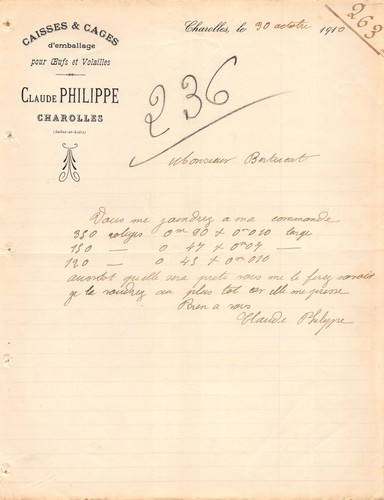 263
CAISSES & CAGES
d'emballage
pour Œufs et Volailles
CLAUDE PHILIPPE
CHAROLLES
(Saône-et-Loire)
Charolles, le 30 octobre 1910
236
Monsieur
Vous me joindrez a ma commande
350 0 m 90 x 0 m 010 large
150 — 0 47 x 0 m 07 —
120 — 0 45 x 0 m 010
aussitot quelle sera prete vous me le ferez savoir
je la voudrez au plus tot car elle me presse
Bien a vous
Claude Philippe